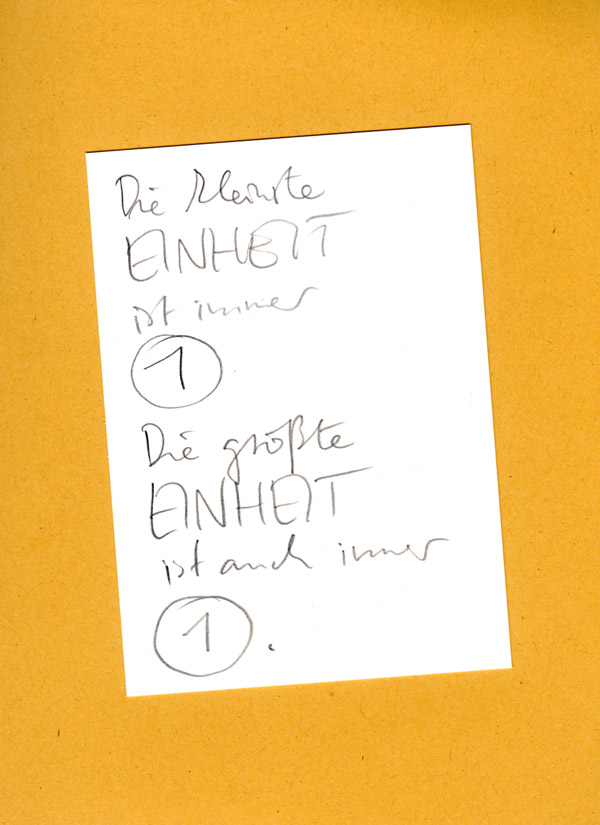 Die kleinste
EINHEIT
ist immer
1
Die größte
EINHEIT
ist auch immer
1.